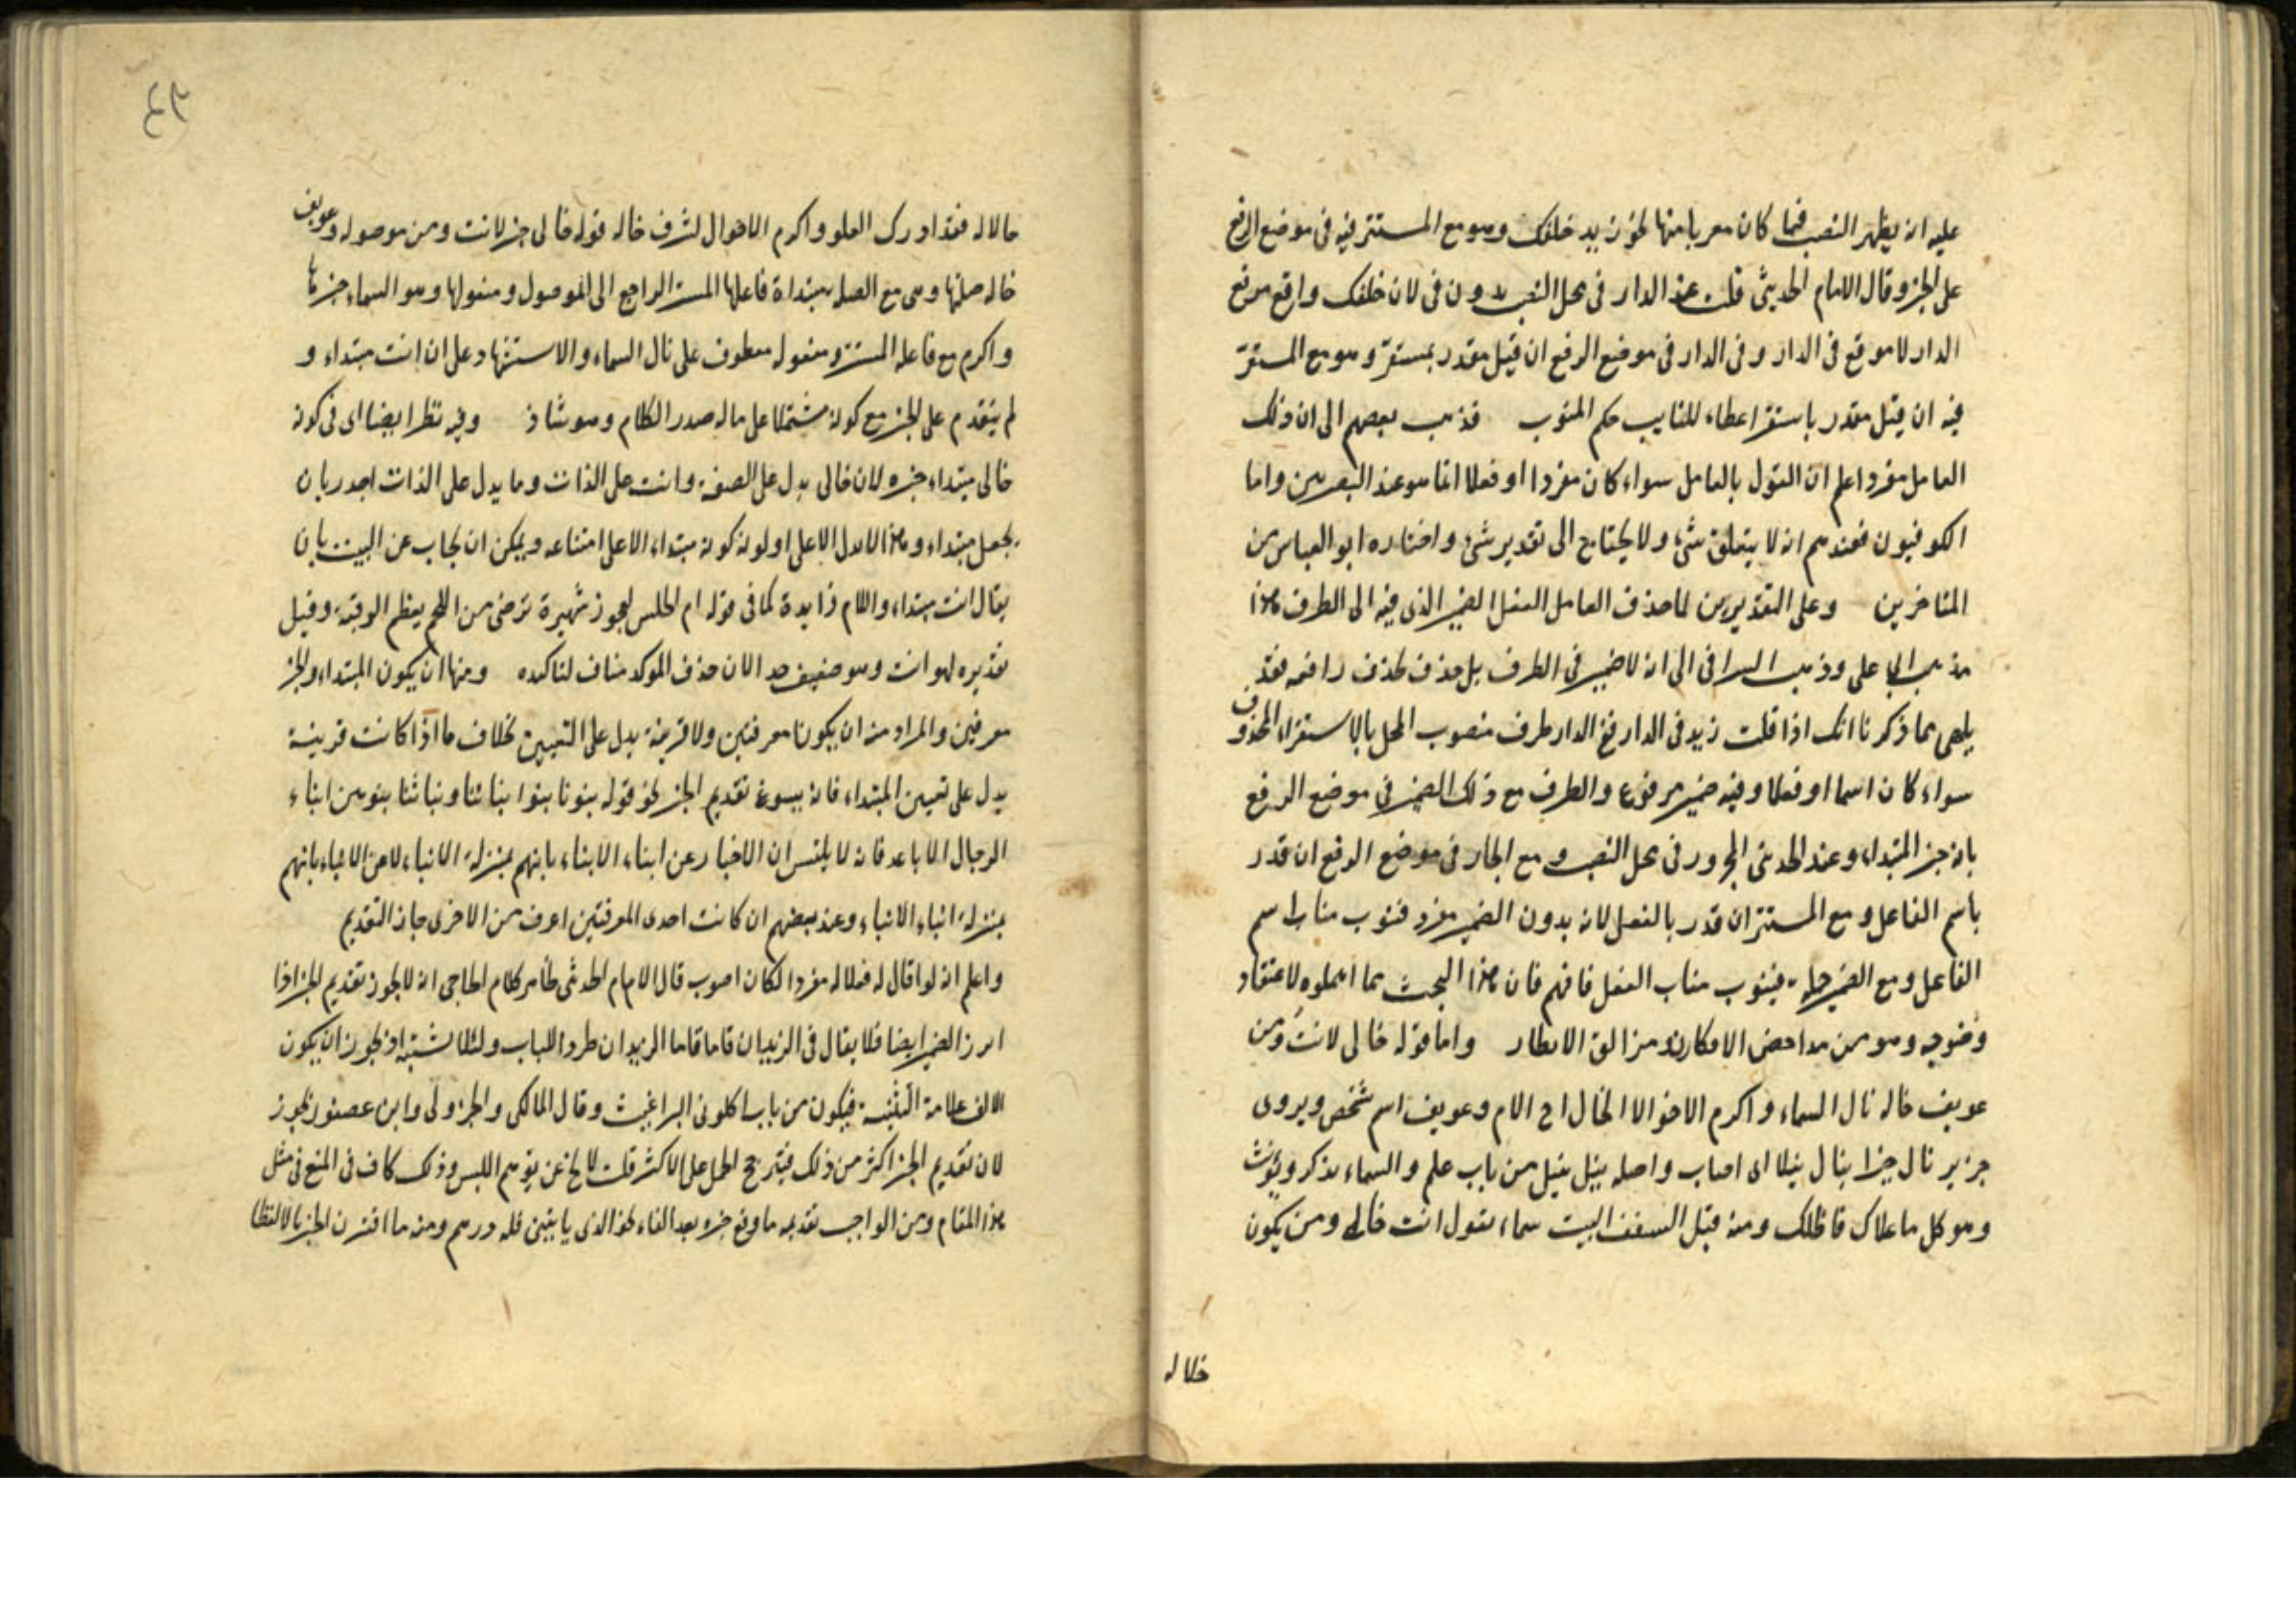 عليه ان يظهر النصب فيما كان معربا منها نحو زيد خلفك وهو مع المستتر فيه في موضع الرفع
على الخبر وقال الامام الحديثي قلت عند الدار في محل النصب بدون في لان خلفك واقع موقع
الدار لا موقع في الدار وفي الدار في موضع الرفع ان قيل مقدر بمستقر وهو مع المستقر
فيه ان قيل مقدر باستقر اعطاء للنايب حكم المنوب فذهب بعضهم الى ان ذلك
العامل مفرد اعلم ان القول بالعامل سواء كان مفردا او فعلا انما هو عند البصريين واما
الكوفيون فعندهم انه لا يتعلق بشئ ولا يحتاج الى تقدير شئ واختاره ابو العباس من
المتاخرين وعلى التقديرين لما حذف العامل انتقل الضمير الذي فيه الى الظرف هذا
مذهب ابي علي وذهب السيرافي الى انه لا ضمير في الظرف بل حذف لحذف رافعه فقد
يلخص مما ذكرنا انك اذا قلت زيد في الدار ففي الدار ظرف منصوب المحل بالاستقرار المحذوف
سواء كان اسما او فعلا وفيه ضمير مرفوع والظرف مع ذلك الضمير في موضع الرفع
بانه خبر المبتداء وعند الحديثي المجرور في محل النصب ومع الجار في موضع الرفع ان قدر
باسم الفاعل ومع المستتر ان قدر بالفعل لانه بدون الضمير مفرد فينوب مناب اسم
الفاعل ومع الضمير جملة فينوب مناب الفعل فافهم فان هذا البحث مما اهملوه لاعتقاد
وضوحه وهو من مداحض الافكار ومزالق الانظار واما قوله خالي لانت ومن
عويف خاله نال السماء واكرم الاخوالا الخال اخ الام وعويف اسم شخص ويروى
جرير نال خيرا ينال نيلا اى اصاب واصله ينيل نيل من باب علم والسماء يذكر ويؤنث
وهو كل ما علاك فاظلك ومنه قيل السقف البيت سماء يقول انت خالي ومن يكون
خلاله
حالاله فقد ادرك العلو واكرم الاخوال لشرف خاله قوله خالى خبر لانت ومن موصولة وعويف
خاله صلتها وهي مع الصلة مبتداة فاعلها المستتر الراجع الى الموصول ومفعولها وهو السماء خبرها
واكرم مع فاعله المستتر ومفعوله معطوف على نال السماء والاستشهاد على ان انت مبتداء و
لم يتقدم على الخبر مع كونه مشتملا على ماله صدر الكلام وهو شاذ وفيه نظر ايضا اى في كونه
خالى مبتداء خبره لان خالى يدل على الصفة وانت على الذات وما يدل على الذات اجدر بان
يجعل مبتداء وهذا لا يدل الا على اولوية كونه مبتداء لا على امتناعه ويمكن ان يجاب عن البيت بان
يقال انت مبتداء واللام زايدة كما في قوله ام الحليس لعجوز شهيرة ترضى من اللحم بعظم الرقبة وقيل
تقديره لهو انت وهو ضعيف جدا لان حذف الموكد مناف لتاكيده ومنها ان يكون المبتداء والخبر
معرفتين والمراد منه ان يكونا معرفتين ولا قرينة يدل على التعيين بخلاف ما اذا كانت قرينة
يدل على تعيين المبتداء فانه يسوغ تقديم الخبر نحو قوله بنونا بنوا بناتنا وبناتنا بنوهن ابناء
الرجال الاباعد فانه لا يلتبس ان الاخبار عن ابناء الابناء بانهم بمنزلة الابناء لا عن الابناء بانهم
بمنزلة ابناء الابناء وعند بعضهم ان كانت احدى المعرفتين اعرف من الاخرى جاز التقديم
واعلم انه لو قال له فعلا له مفردا لكان اصوب قال الامام الحديثي ظاهر كلام الحاجبي انه لا يجوز تقديم الخبر اذا
ابرز الضمير ايضا فلا يقال في الزيدان قاما قاما الزيدان طردا للباب ولئلا يشتبه اذ يجوز ان يكون
الالف علامة التثنية فيكون من باب اكلوني البراغيث وقال المالكي والجزولي وابن عصفور يجوز
لان تقديم الخبر اكثر من ذلك فيترجح الحمل على الاكثر قلت لا يخ عن توهم اللبس وذلك كاف في المنع في مثل
هذا المقام ومن الواجب تقديمه ما وقع خبره بعد الفاء نحو الذي ياتيني فله درهم ومنه ما اقترن الخبر بالا لفظا